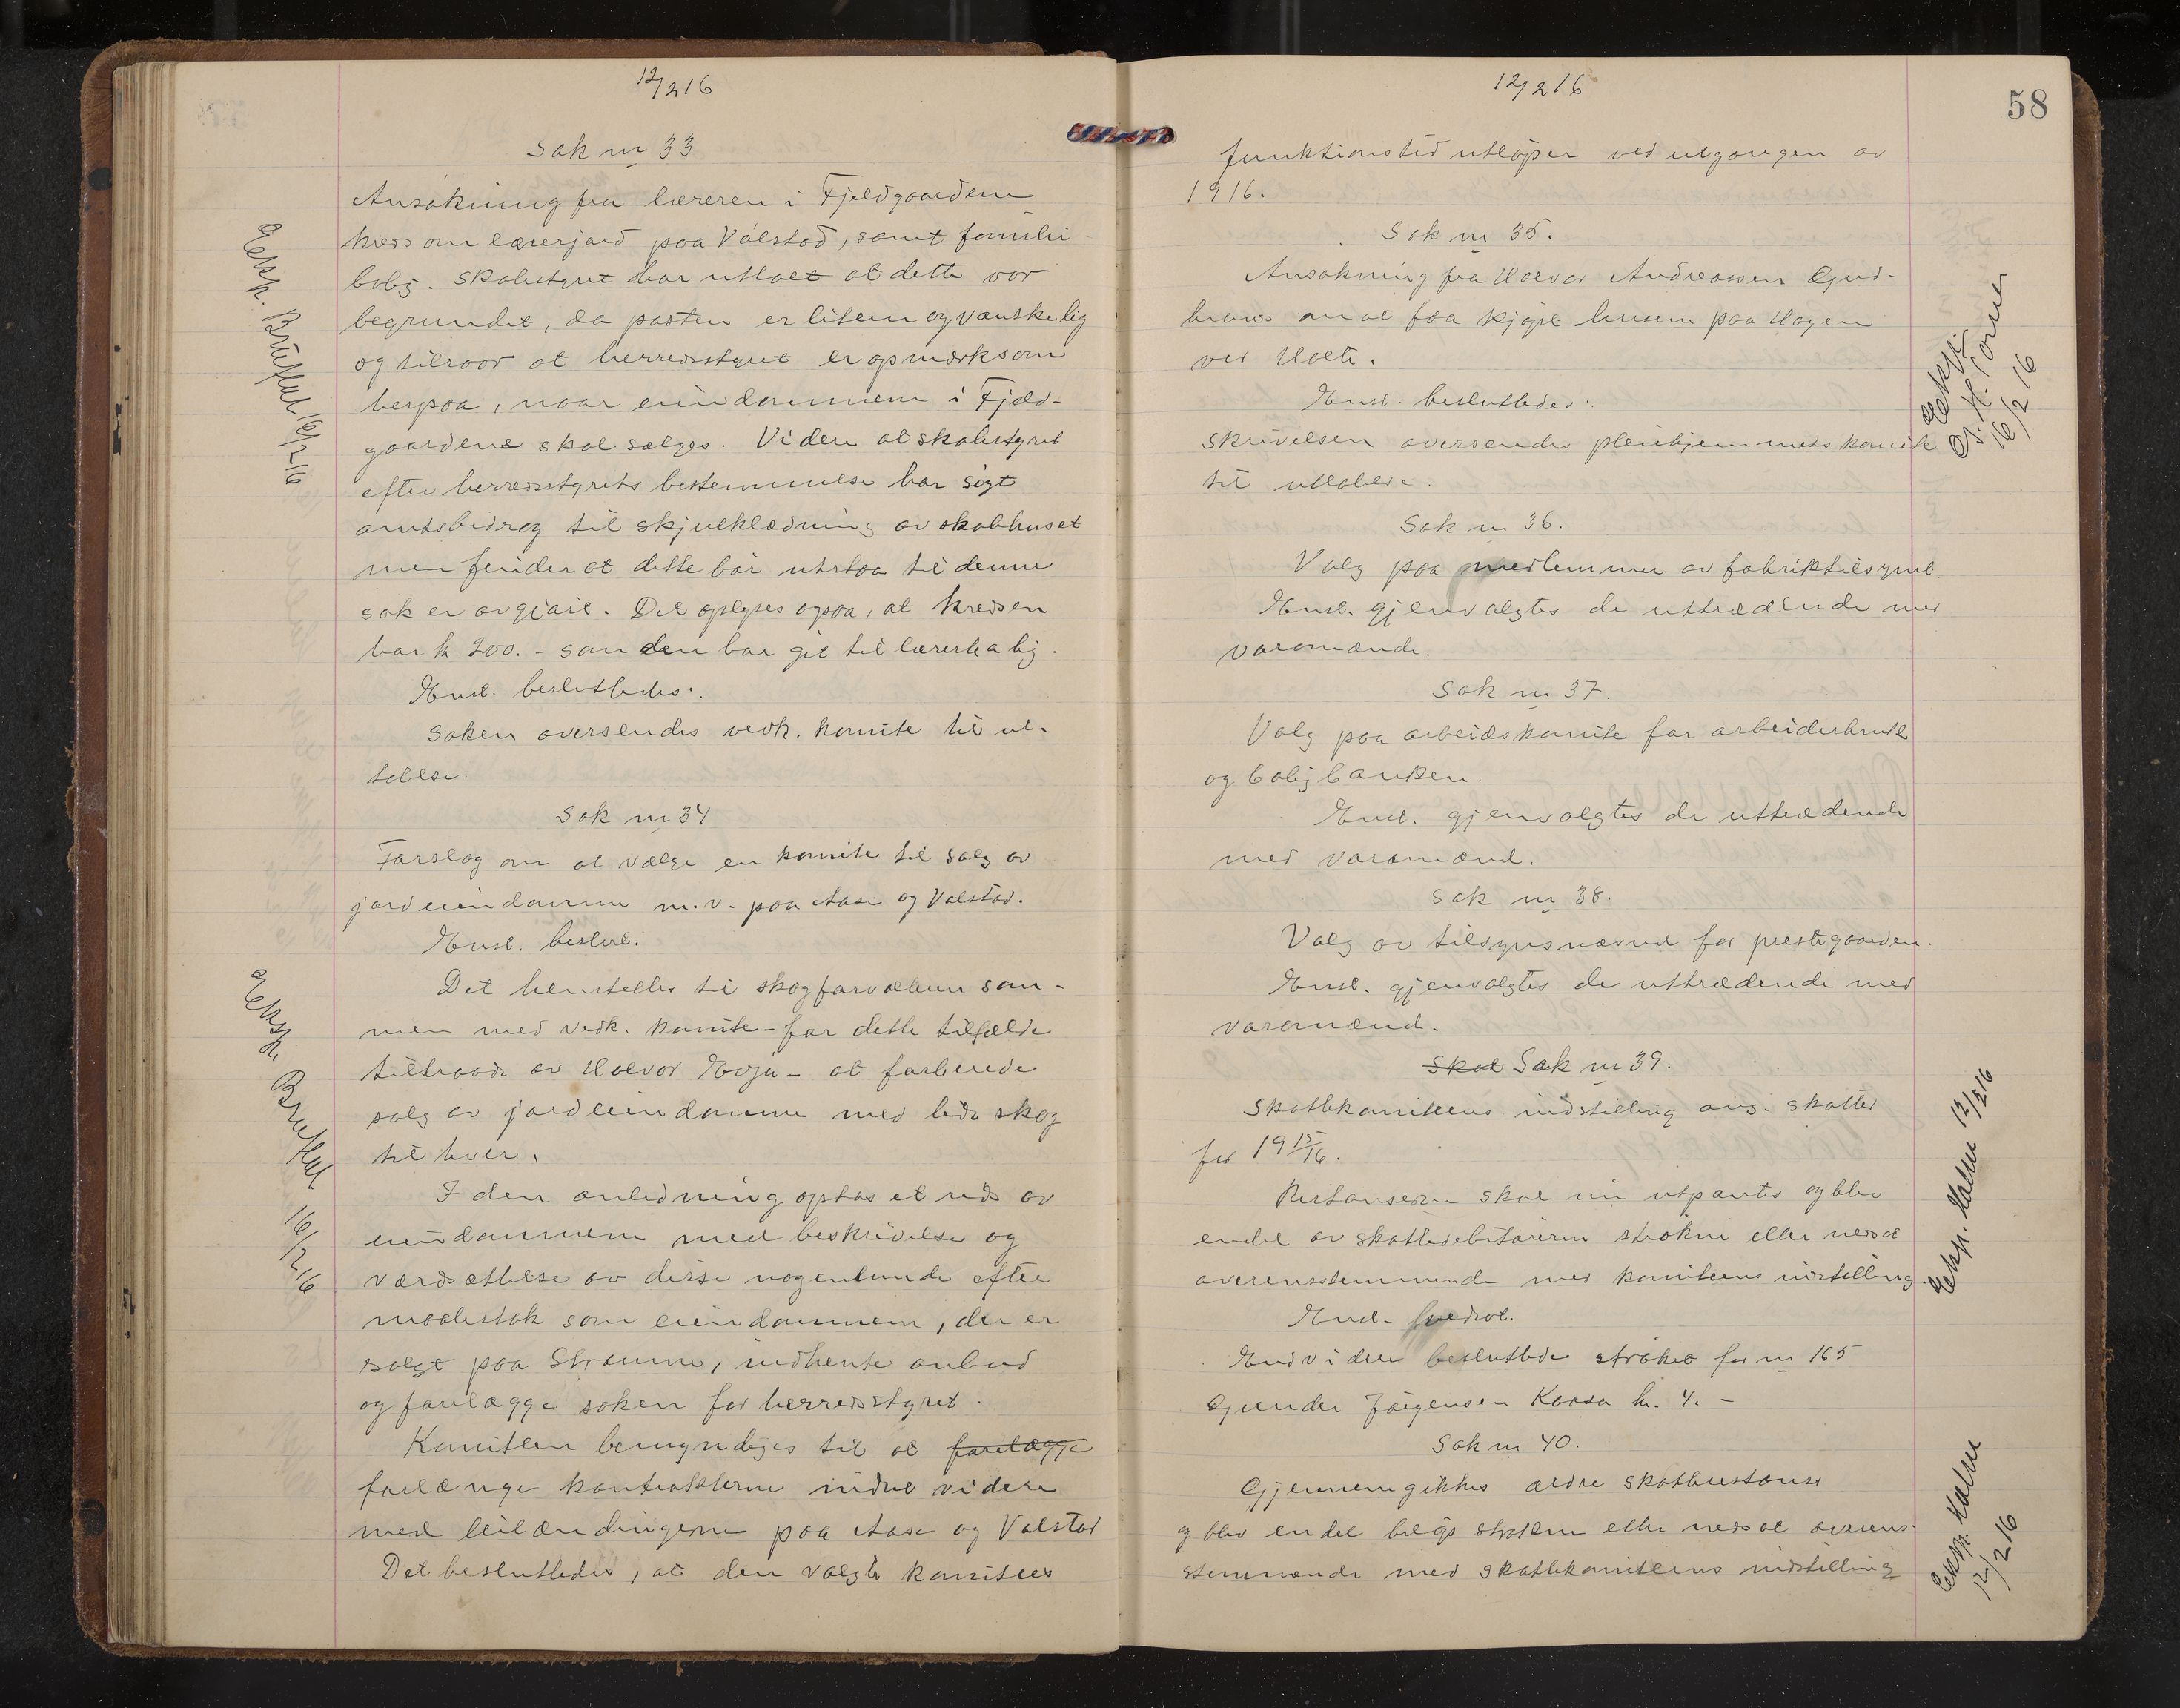 12/2 16
Sak nr 33
Ansøkning fra læreren i Fjeldgaardene
kreds om lærerjord paa Valstad, samt familie
bolig. Skolestyret har uttalt at dette var
begrundet, da posten er liten og vanskelig
og tilraar at herredsstyret er opmerksom
herpaa, naar eiendommene i Fjeld-
gaardene skal sælges. Videre at skolestyret
efter herredsstyrets bestemmelse har søgt
amtsbidrag til skjulklædning av skolehuset
men finder at dette bør utstaa til denne
sak er avgjort. Det oplyses ogsaa, at kredsen
har k. 200.- som den har git til lærerbolig.
Enst. besluttedes:
Saken oversendes vedk. komite til ut-
talelse.
Eksp. Bruflat 16/2 16
Sak nr 34
Forslag om at vælge en komite til salg av
jordeiendomme m.v. paa Aase og Valstad.
Enst. beslut.
Det henstilles til skogforvalteren sam-
men med vedk. komite - for dette tilfælde
tiltraadt av Halvor Hvja - at forberede
salg av jordeiendomme med litt skog
til hver.
I den anledning optas et rids av
eiendommene med beskrivelse og
værdsættelse av disse nogenlunde efter
maalestok som eiendommene, der er
solgt paa Strømme, indhente anbud
og forelægge saken for herredsstyret.
Komiteen bemyndiges til at forelægge
forlænge kontrakterne indtil videre
med leilændingerne paa Aase og Valstad
Det besluttedes, at den valgte komitees
Eksp. Bruflat 16/2 16
12/2 16
58
funktionstid utløper ved utgangen av
1916.
Sak nr 35.
Ansøkning fra Halvor Andreassen Gjud-
brands om at faa kjøpt husene paa Hagen
ved Holte.
Enst. besluttedes:
Skrivelsen oversendes pleiehjemmets komite
til uttalelse.
Eksp.
16/2 16
Sak nr 36.
Valg paa medlemmer av fabriktilsynet.
Enst. gjenvalgtes de uttrædende med
varamænd.
Sak nr 37.
Valg paa arbeidskomite for arbeiderbruk
og boligbanken.
Enst. gjenvalgtes de uttrædende
med varamænd.
Sak nr 38.
Valg av tilsynsnævnd for prestegaarden.
Enst. gjenvalgtes de uttrædende med
varamænd.
Skat Sak nr 39.
Skattekomiteens indstilling ang. skatter
for 1915/16.
Restanserne skal nu utpantes og blev
endel av skattedebitorerne strøkne eller nedsat
overensstemmende med komiteens indstilling.
Enst. vedtat.
Endvidere besluttedes strøket for nr 165
Gunder Jørgensen Kaasa kr. 4. -
Eksp. Holm 12/2 16
Sak nr 40.
Gjennemgikkes ældre skatterestanser
og blev endel beløp strøkne eller nedsat overens-
stemmende med skattekomiteens indstilling
Eksp. Holm
12/2 16